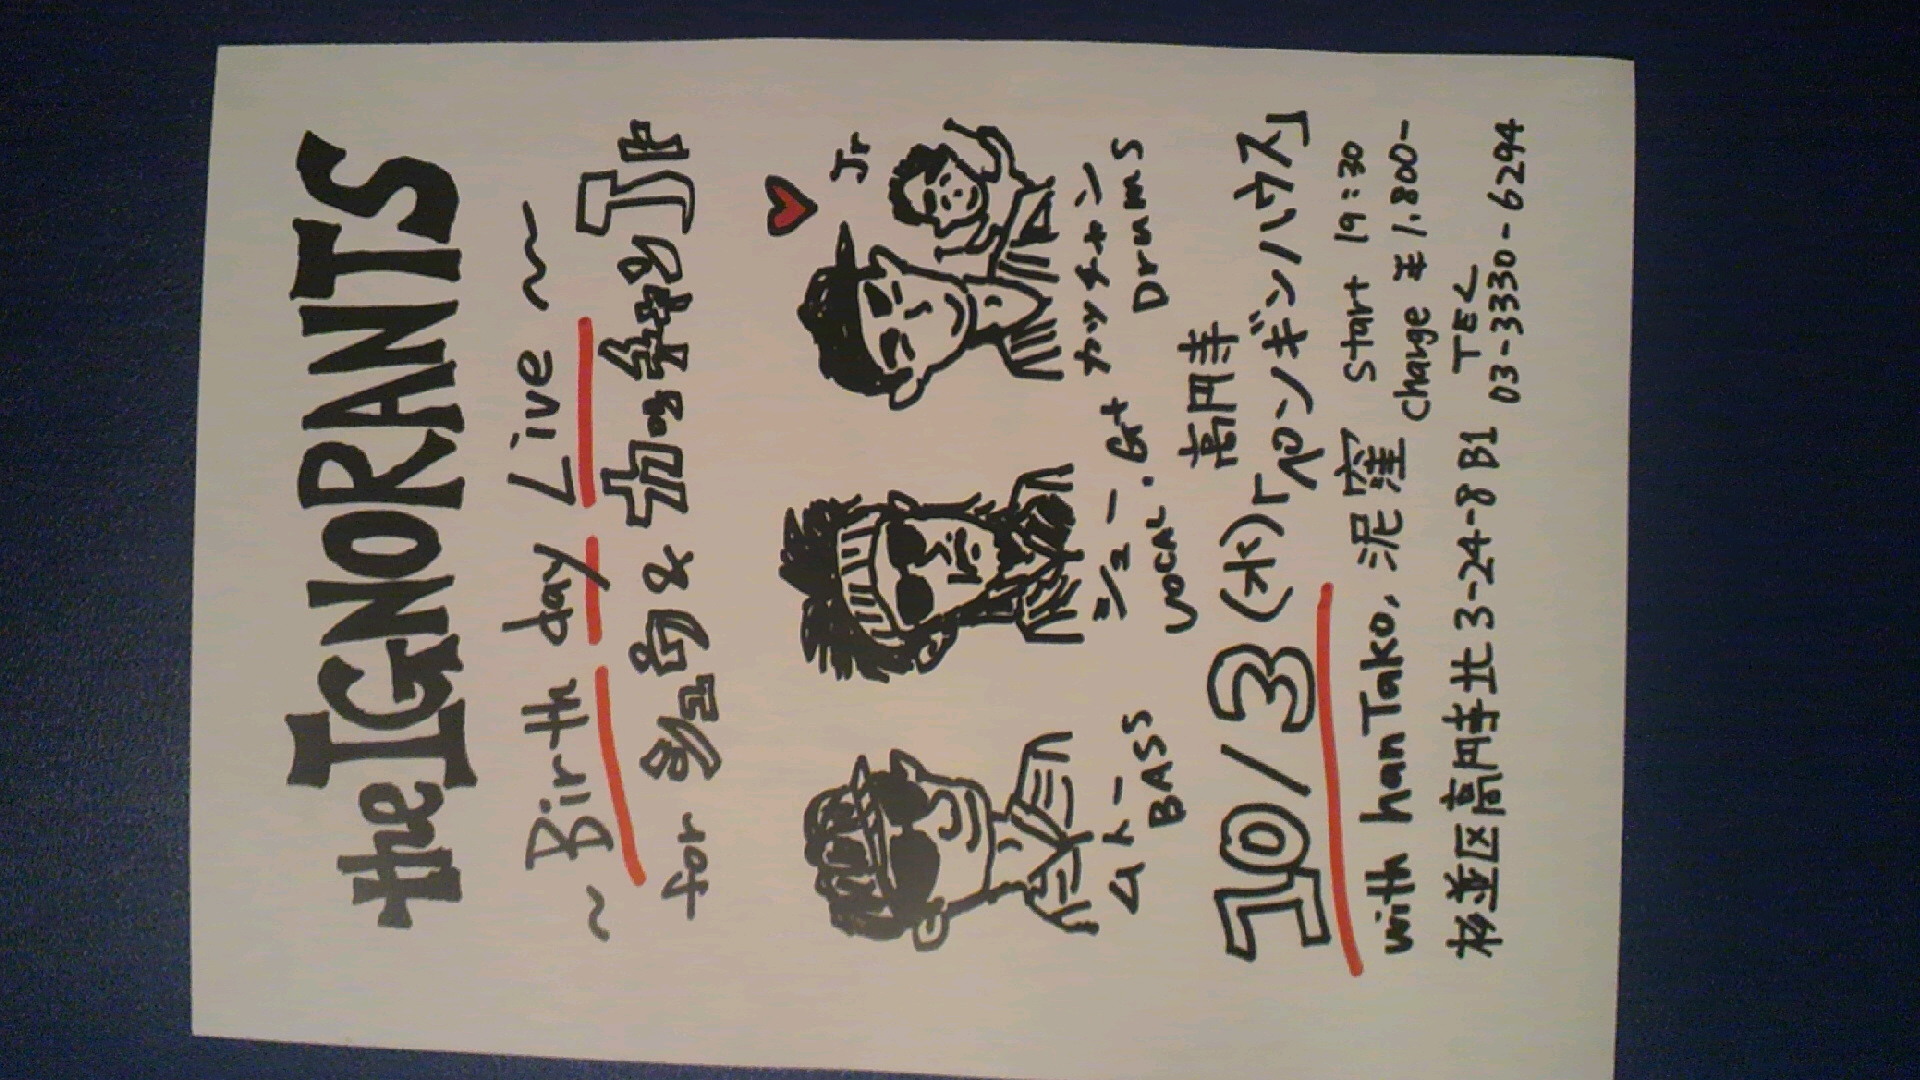 the IGNORANTS
~ Birth day Live ~
for &
Jr
ムトー
BASS
シュー
VOCAL. Gt
カッチャン
Drums
高円寺
10/3(水)「ペンギンハウス」
with hanTako, 泥窪
Start 19:30
Charge ¥1.800-
杉並区高円寺北3-24-8 B1
TEL
03-3330-6294